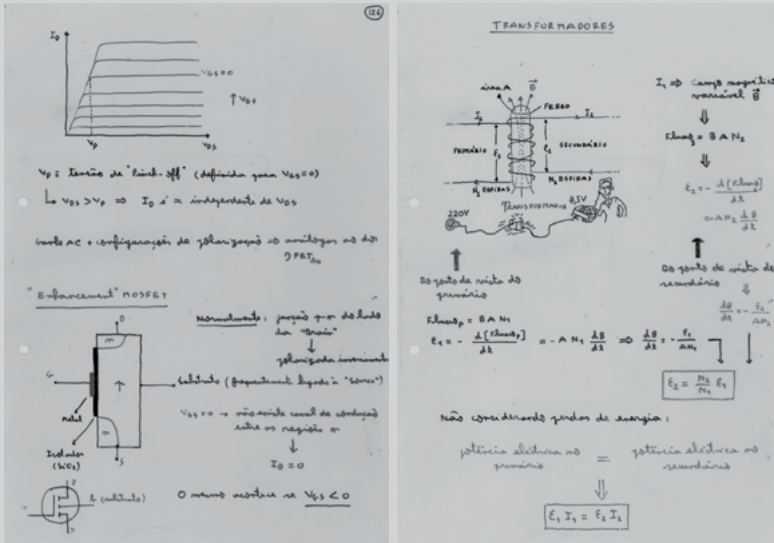 126
I_D
V_GS=0
↑ V_GS
V_P
V_DS
V_P ≡ Tensão de "Pinch-off" (definida para V_GS=0)
↳ V_DS > V_P ⇒ I_D é ≈ independente de V_DS
AC + configurações de polarização análogas ao do
JFET
"Enhancement" MOSFET
D
n
G
Metal
Isolador
(SiO2)
n
S
Normalmente: junção p-n do lado
da "Drain"
↓
polarizada
Substrato (frequentemente ligado à "Source")
V_GS=0 → não existe canal de condução
entre as regiões n
↓
I_D = 0
D
b (substrato)
S
O mesmo acontece se V_GS < 0
TRANSFORMADORES
área A
B
FERRO
I_1
I_2
PRIMÁRIO
ε_1
ε_2
SECUNDÁRIO
N_2 ESPIRAS
TRANSFORMADOR
220V
4,5V
I_1 ⇒ Campo magnético
variável B
⇓
Fluxo_2 = B A N_2
⇓
ε_2 = - d[Fluxo_2]/dt
= - A N_2 dB/dt
Do ponto de vista do
primário
Fluxo_P = B A N_1
ε_1 = - d[Fluxo_P]/dt = - A N_1 dB/dt ⇒ dB/dt = - ε_1/AN_1
Do ponto de vista do
secundário
⇓
dB/dt = - ε_2/AN_2
ε_2 = N_2/N_1 ε_1
Não considerando perdas de energia:
potência elétrica no primário = potência elétrica no secundário
⇓
ε_1 I_1 = ε_2 I_2